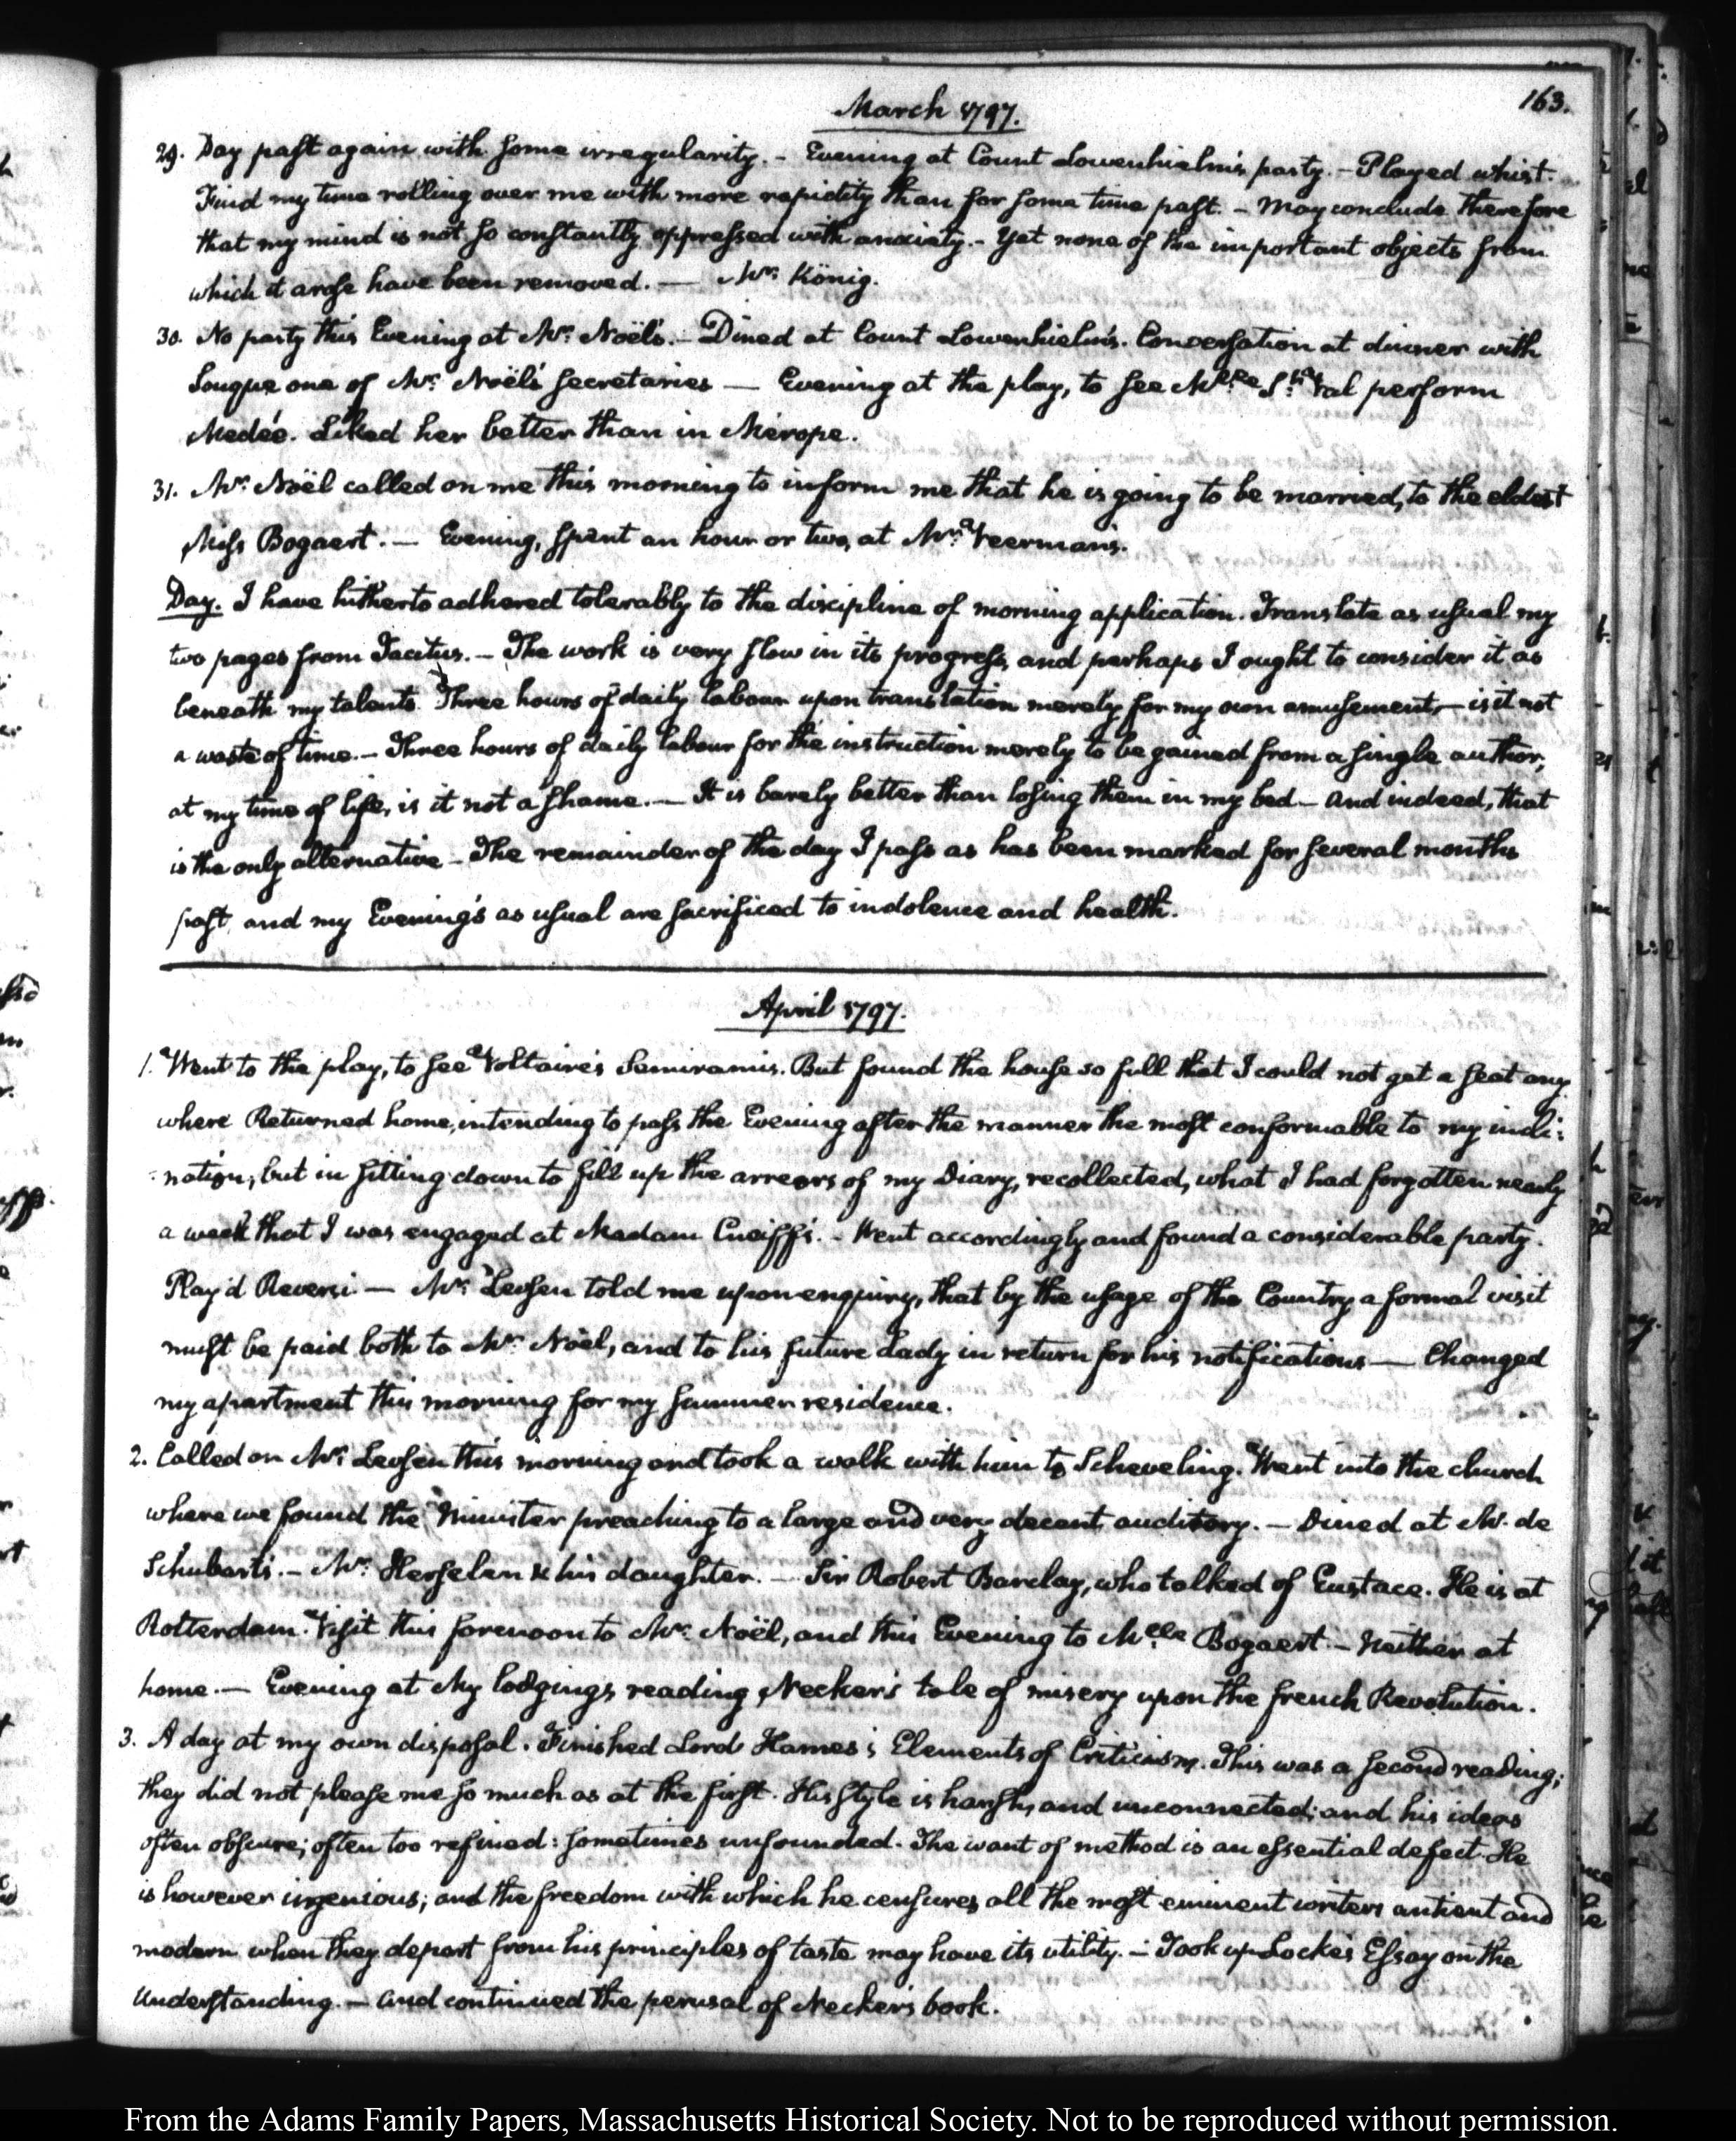 163.
March 1797.
29. Day past again with some irregularity. - Evening at Count Lowenhielm's party. - Played whist.
Find my time rolling over me with more rapidity than for some time past. - May conclude therefore
that my mind is not so constantly oppressed with anxiety. - Yet none of the important objects from
which it arose have been removed. — Mr. König.
30. No party this Evening at Mr. Noël's. - Dined at Count Lowenhielm's. Conversation at dinner with
Souque one of Mr. Noël's secretaries — Evening at the play, to see Mlle. St. Val perform
Medée. Liked her better than in Mérope.
31. Mr. Noël called on me this morning to inform me that he is going to be married, to the eldest
Miss Bogaert. — Evening, spent an hour or two, at Mr. Veerman's.
Day. I have hitherto adhered tolerably to the discipline of morning application. Translate as usual my
two pages from Tacitus. - The work is very slow in its progress, and perhaps I ought to consider it as
beneath my talents. Three hours of daily labour upon translation merely for my own amusement, - is it not
a waste of time. - Three hours of daily labour for the instruction merely to be gained from a single author,
at my time of life, is it not a shame. — It is barely better than losing them in my bed - And indeed, that
is the only alternative - The remainder of the day I pass as has been marked for several months
past, and my Evening's as usual are sacrificed to indolence and health.
April 1797.
1. Went to the play, to see Voltaire's Semiramis. But found the house so full that I could not get a seat any
where Returned home, intending to pass the Evening after the manner the most conformable to my incli:
:nation, but in sitting down to fill up the arrears of my Diary, recollected, what I had forgotten nearly
a week that I was engaged at Madam Cneiff's. - Went accordingly and found a considerable party.
Play'd Reversi — Mr. Levsen told me upon enquiry, that by the usage of the Country a formal visit
must be paid both to Mr. Noël, and to his future Lady in return for his notifications — Changed
my apartment this morning for my summer residence.
2. Called on Mr. Levsen this morning and took a walk with him to Scheveling. Went into the church
where we found the Minister preaching to a large and very decent auditory. — Dined at M. de
Schubart's. - Mr. Hesselen & his daughter. - Sir Robert Barclay, who talked of Eustace. He is at
Rotterdam. Visit this forenoon to Mr. Noël, and this Evening to Mlle Bogaert - Neither at
home. — Evening at My lodgings, reading Necker's tale of misery upon the french Revolution.
3. A day at my own disposal. Finished Lord Kames's Elements of Criticism. This was a second reading;
they did not please me so much as at the first. His style is harsh, and unconnected; and his ideas
often obscure; often too refined: sometimes unfounded. The want of method is an essential defect. He
is however ingenious; and the freedom with which he censures all the most eminent writers antient and
modern when they depart from his principles of taste may have its utility. - Took up Locke's Essay on the
Understanding. - And continued the perusal of Necker's book.
From the Adams Family Papers, Massachusetts Historical Society. Not to be reproduced without permission.